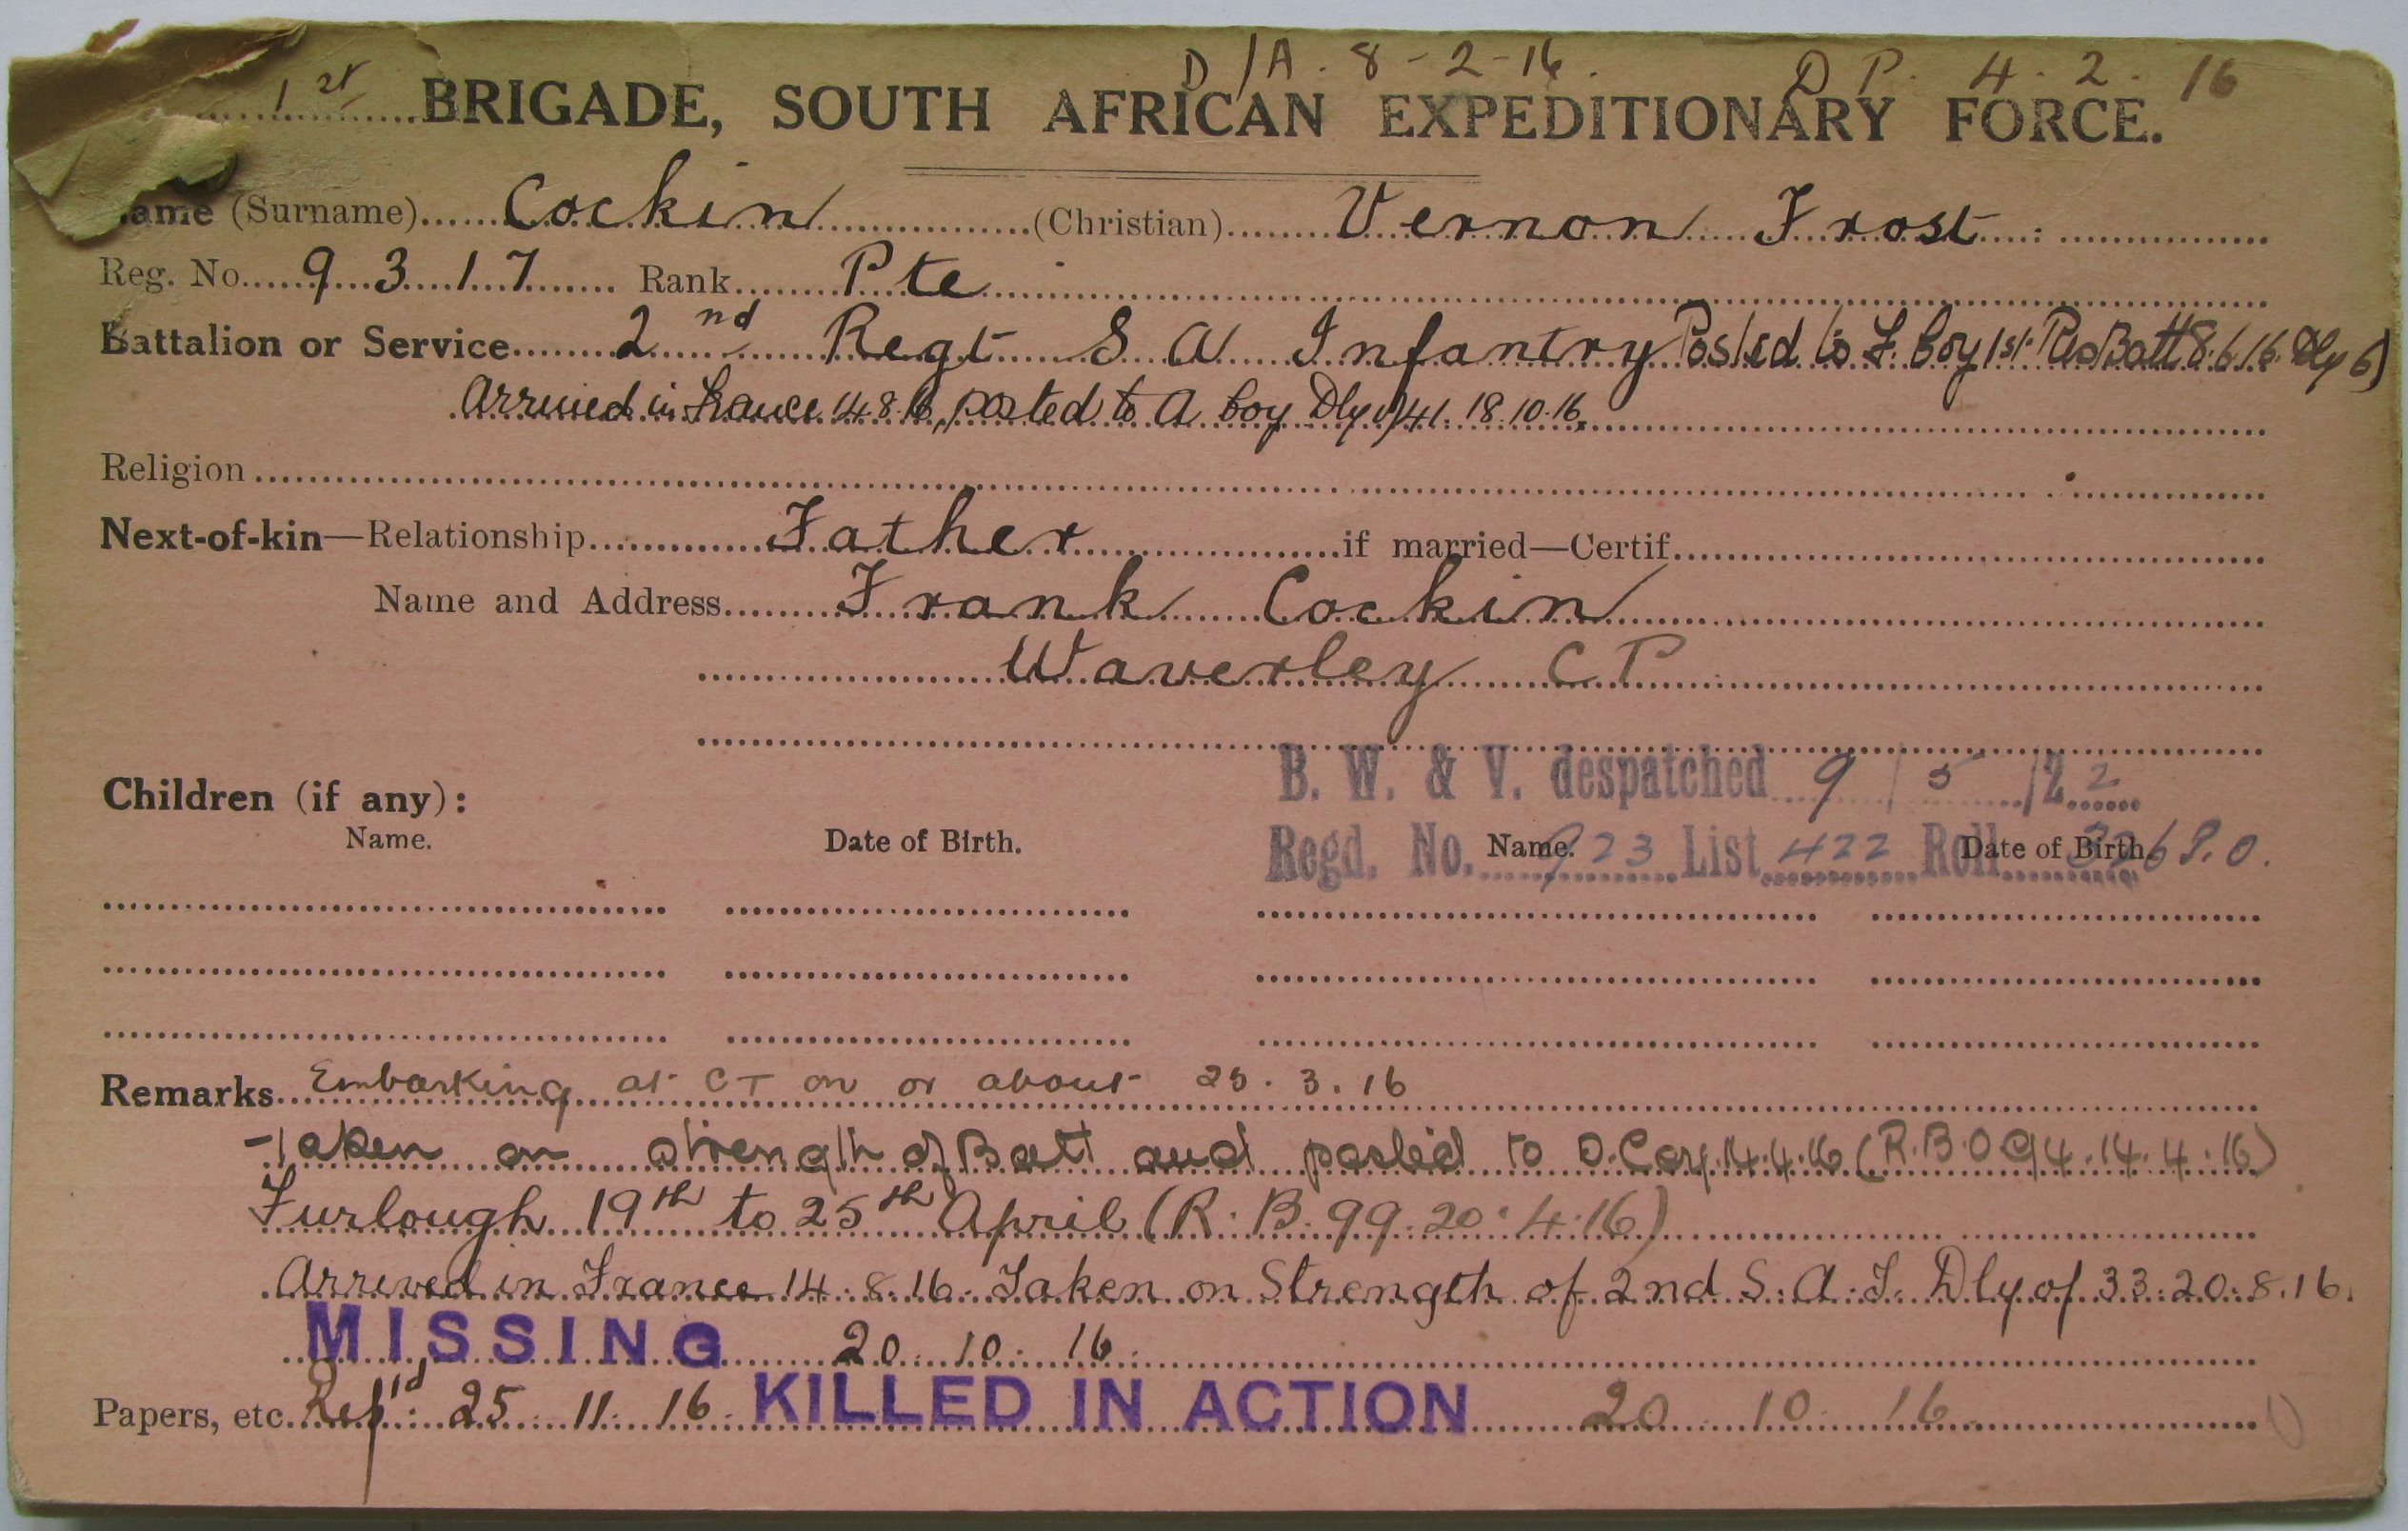 D/A. 8-2-16. D P. 4. 2. 16
1st BRIGADE, SOUTH AFRICAN EXPEDITIONARY FORCE.
Name (Surname) Cockin (Christian) Vernon Frost
Reg. No. 9317 Rank Pte
Battalion or Service 2nd Regt S A Infantry Posted to F. Coy 1st Res Batt 8.6.16. Dly 6)
Arrived in France 14.8.16, posted to A Coy Dly 41. 18.10.16.
Religion
Next-of-kin—Relationship Father if married—Certif.
Name and Address Frank Cockin
Waverley C P
B. W. & V. despatched 9/5/22
Children (if any):
Name. Date of Birth. Name. Date of Birth.
Regd. No. 923 List 422 Roll
Remarks Embarking at CT on or about 25.3.16
Taken on strength of Batt and posted to D. Coy. 14.4.16 (R.B.O 94. 14. 4. 16)
Furlough 19th to 25th April (R. B. 99. 20. 4. 16)
Arrived in France 14. 8. 16. Taken on Strength of 2nd S. A. I. Dly of 33. 20. 8. 16.
MISSING 20. 10. 16.
Papers, etc. Rep'd 25. 11. 16. KILLED IN ACTION 20 10 16